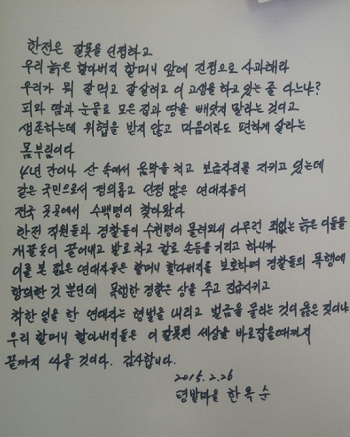 한전은 잘못을 인정하고
우리 늙은 할아버지 할머니 앞에 진정으로 사과해라
우리가 뭐 잘 먹고 잘 살려고 이 고생을 하고 있는 줄 아느냐?
피와 땀과 눈물로 모은 집과 땅을 빼앗지 말라는 것이고
생존하는데 위협을 받지 않고 마음이라도 편하게 살라는
몸부림이다
4년 간이나 산 속에서 움막을 쳐고 보금자리를 지키고 있는데
같은 국민으로서 정의롭고 인정 많은 연대자들이
전국 곳곳에서 수백명이 찾아왔다
한전 직원들과 경찰들이 수천명이 몰려와서 아무런 죄없는 늙은이들을
개끌듯이 끌어내고 발로 차고 칼로 손등을 거리고 하니까
이를 본 젊은 연대자들은 할머니 할아버지를 보호하며 경찰들의 폭행에
항의한 것 뿐인데 폭행한 경찰은 상을 주고 진급시키고
착한 일을 한 연대자는 형벌을 내리고 벌금을 물리는 것이 옳은 짓이냐
우리 할머니 할아버지들은 이 잘못된 세상을 바로잡을때까지
끝까지 싸울 것이다. 감사합니다.
2015.2.26
평밭마을 한옥순